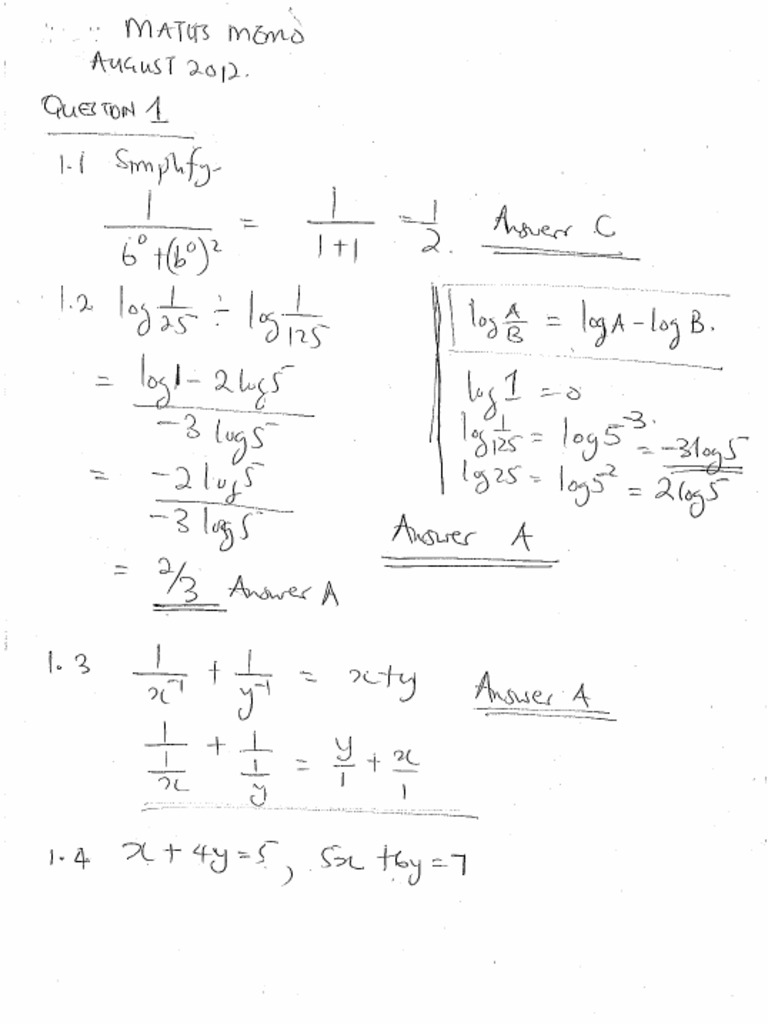 MATHS MEMO
AUGUST 2012.
QUESTON 1
1.1 Simplify
1/(6⁰+(b⁰)²) = 1/(1+1) = 1/2. Answer C
1.2 log 1/25 ÷ log 1/125
= (log1 - 2log5)/(-3 log5)
= (-2 log5)/(-3 log5)
= 2/3 Answer A
log A/B = logA - log B.
log 1 = 0
log 1/125 = log5⁻³ = -3log5
log 25 = log5² = 2log5
Answer A
1.3 1/x⁻¹ + 1/y⁻¹ = x+y Answer A
1/(1/x) + 1/(1/y) = y/1 + x/1
1.4 x + 4y = 5, 5x + 6y = 7